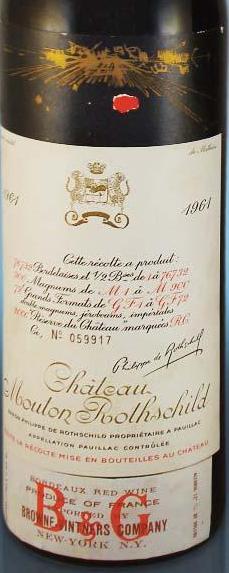 1961
1961
Cette récolte a produit:
76732 Bordelaises et 1/2 Bses de 1 à 76732
900 Magnums de M 1 à M 900
72 Grands Formats de G.F 1 à G.F 72
double magnums, jéroboams, impériales
2000 "Réserve du Château" marquées R.C.
Ci, N° 059917
Philippe de Rothschild
Château
Mouton Rothschild
BARON PHILIPPE DE ROTHSCHILD PROPRIÉTAIRE A PAUILLAC
APPELLATION PAUILLAC CONTRÔLÉE
TOUTE LA RÉCOLTE MISE EN BOUTEILLES AU CHÂTEAU
BORDEAUX RED WINE
PRODUCE OF FRANCE
IMPORTED BY
B & G
BROWNE VINTNERS COMPANY
NEW-YORK N.Y.